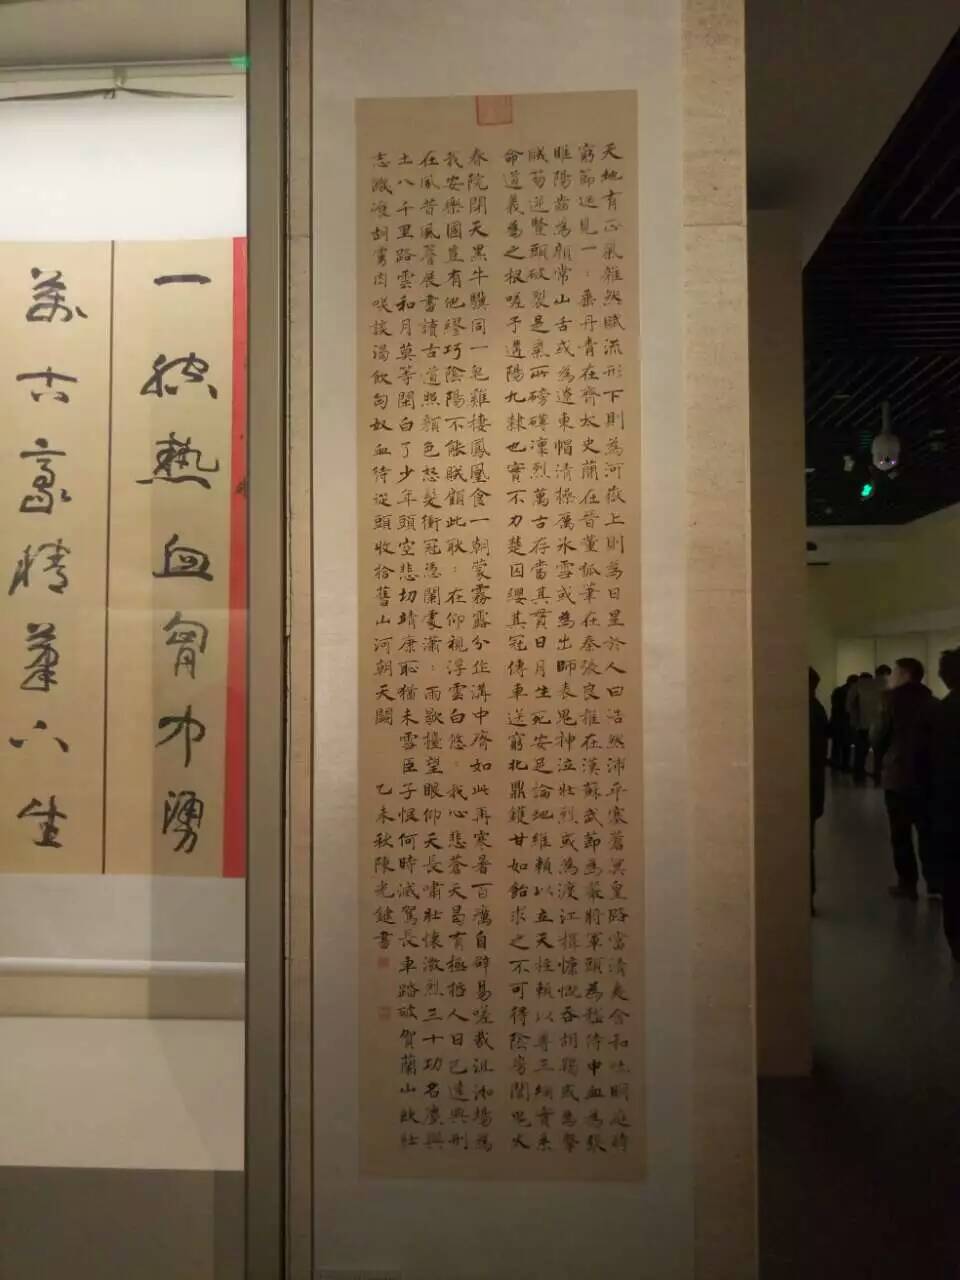 天地有正氣雜然賦流形下則為河嶽上則為日星於人曰浩然沛乎塞蒼冥皇路當清夷含和吐明庭時
窮節迺見一：垂丹青在齊太史簡在晉董狐筆在秦張良椎在漢蘇武節為嚴將軍頭為嵇侍中血為張
睢陽齒為顏常山舌或為遼東帽清操厲冰雪或為出師表鬼神泣壯烈或為渡江楫慷慨吞胡羯或為擊
賊笏逆豎頭破裂是氣所磅礴凜烈萬古存當其貫日月生死安足論地維賴以立天柱賴以尊三綱實系
命道義為之根嗟予遘陽九隸也實不力楚囚纓其冠傳車送窮北鼎鑊甘如飴求之不可得陰房闃鬼火
春院閉天黑牛驥同一皂雞棲鳳凰食一朝蒙霧露分作溝中瘠如此再寒暑百癘自辟易嗟哉沮洳場為
我安樂國豈有他繆巧陰陽不能賊顧此耿：在仰視浮雲白悠：我心悲蒼天曷有極哲人日已遠典刑
在夙昔風簷展書讀古道照顏色怒髮衝冠憑闌處瀟：雨歇擡望眼仰天長嘯壯懷激烈三十功名塵與
土八千里路雲和月莫等閑白了少年頭空悲切靖康恥猶未雪臣子恨何時滅駕長車踏破賀蘭山缺壯
志饑湌胡虜肉笑談渴飲匈奴血待從頭收拾舊山河朝天闕 乙未秋陳光鍵書
一腔熱血胷中湧
萬古豪情筆下生